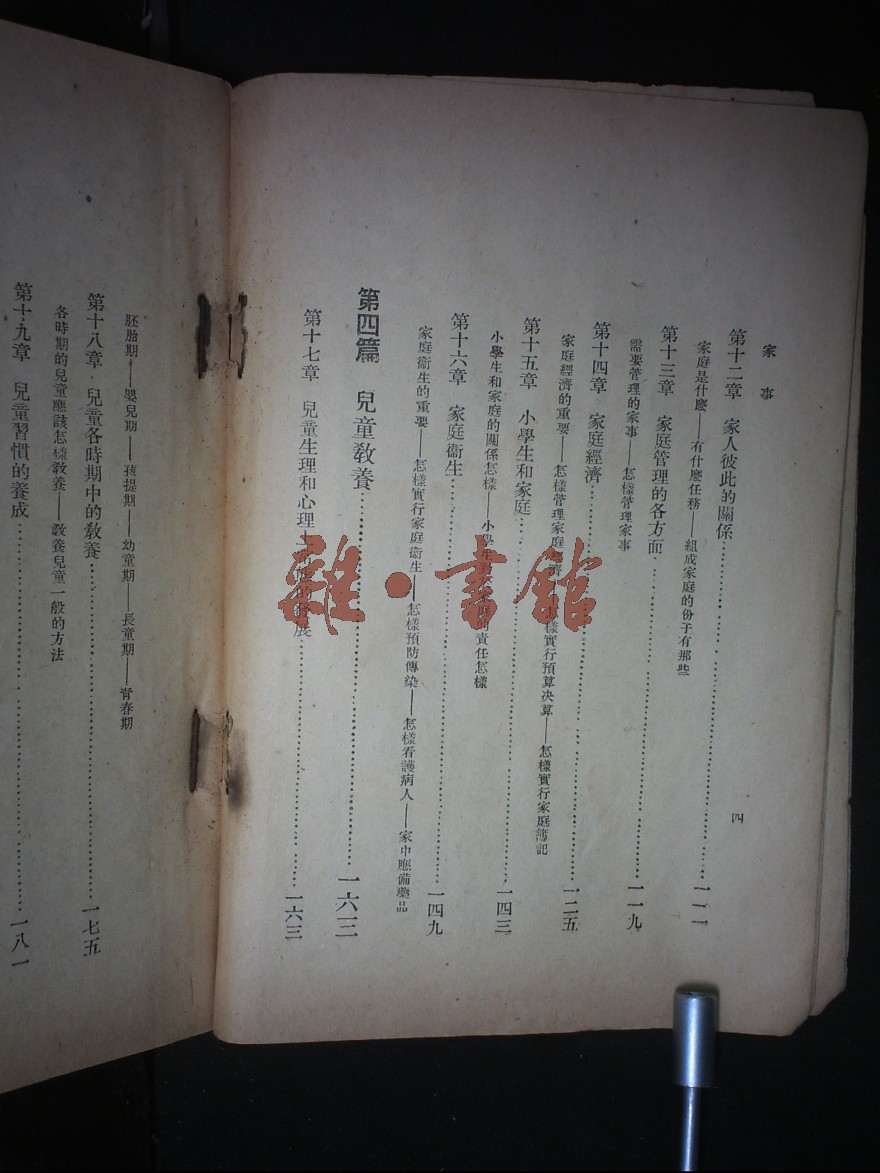 家事
四
第十二章 家人彼此的關係
家庭是什麼——有什麼任務——組成家庭的份子有那些
第十三章 家庭管理的各方面……一一九
需要管理的家事——怎樣管理家事
第十四章 家庭經濟……一二五
家庭經濟的重要——怎樣管理家庭經濟——怎樣實行預算決算——怎樣實行家庭簿記
第十五章 小學生和家庭……一四三
小學生和家庭的關係怎樣——小學生對於家庭的責任怎樣
第十六章 家庭衞生……一四九
家庭衞生的重要——怎樣實行家庭衞生——怎樣預防傳染——怎樣看護病人——家中應備藥品
第四篇 兒童敎養……一六三
第十七章 兒童生理和心理的發展……一六三
胚胎期——嬰兒期——孩提期——幼童期——長童期——青春期
第十八章 兒童各時期中的敎養……一七五
各時期的兒童應該怎樣敎養——敎養兒童一般的方法
第十九章 兒童習慣的養成……一八一
雜·書館